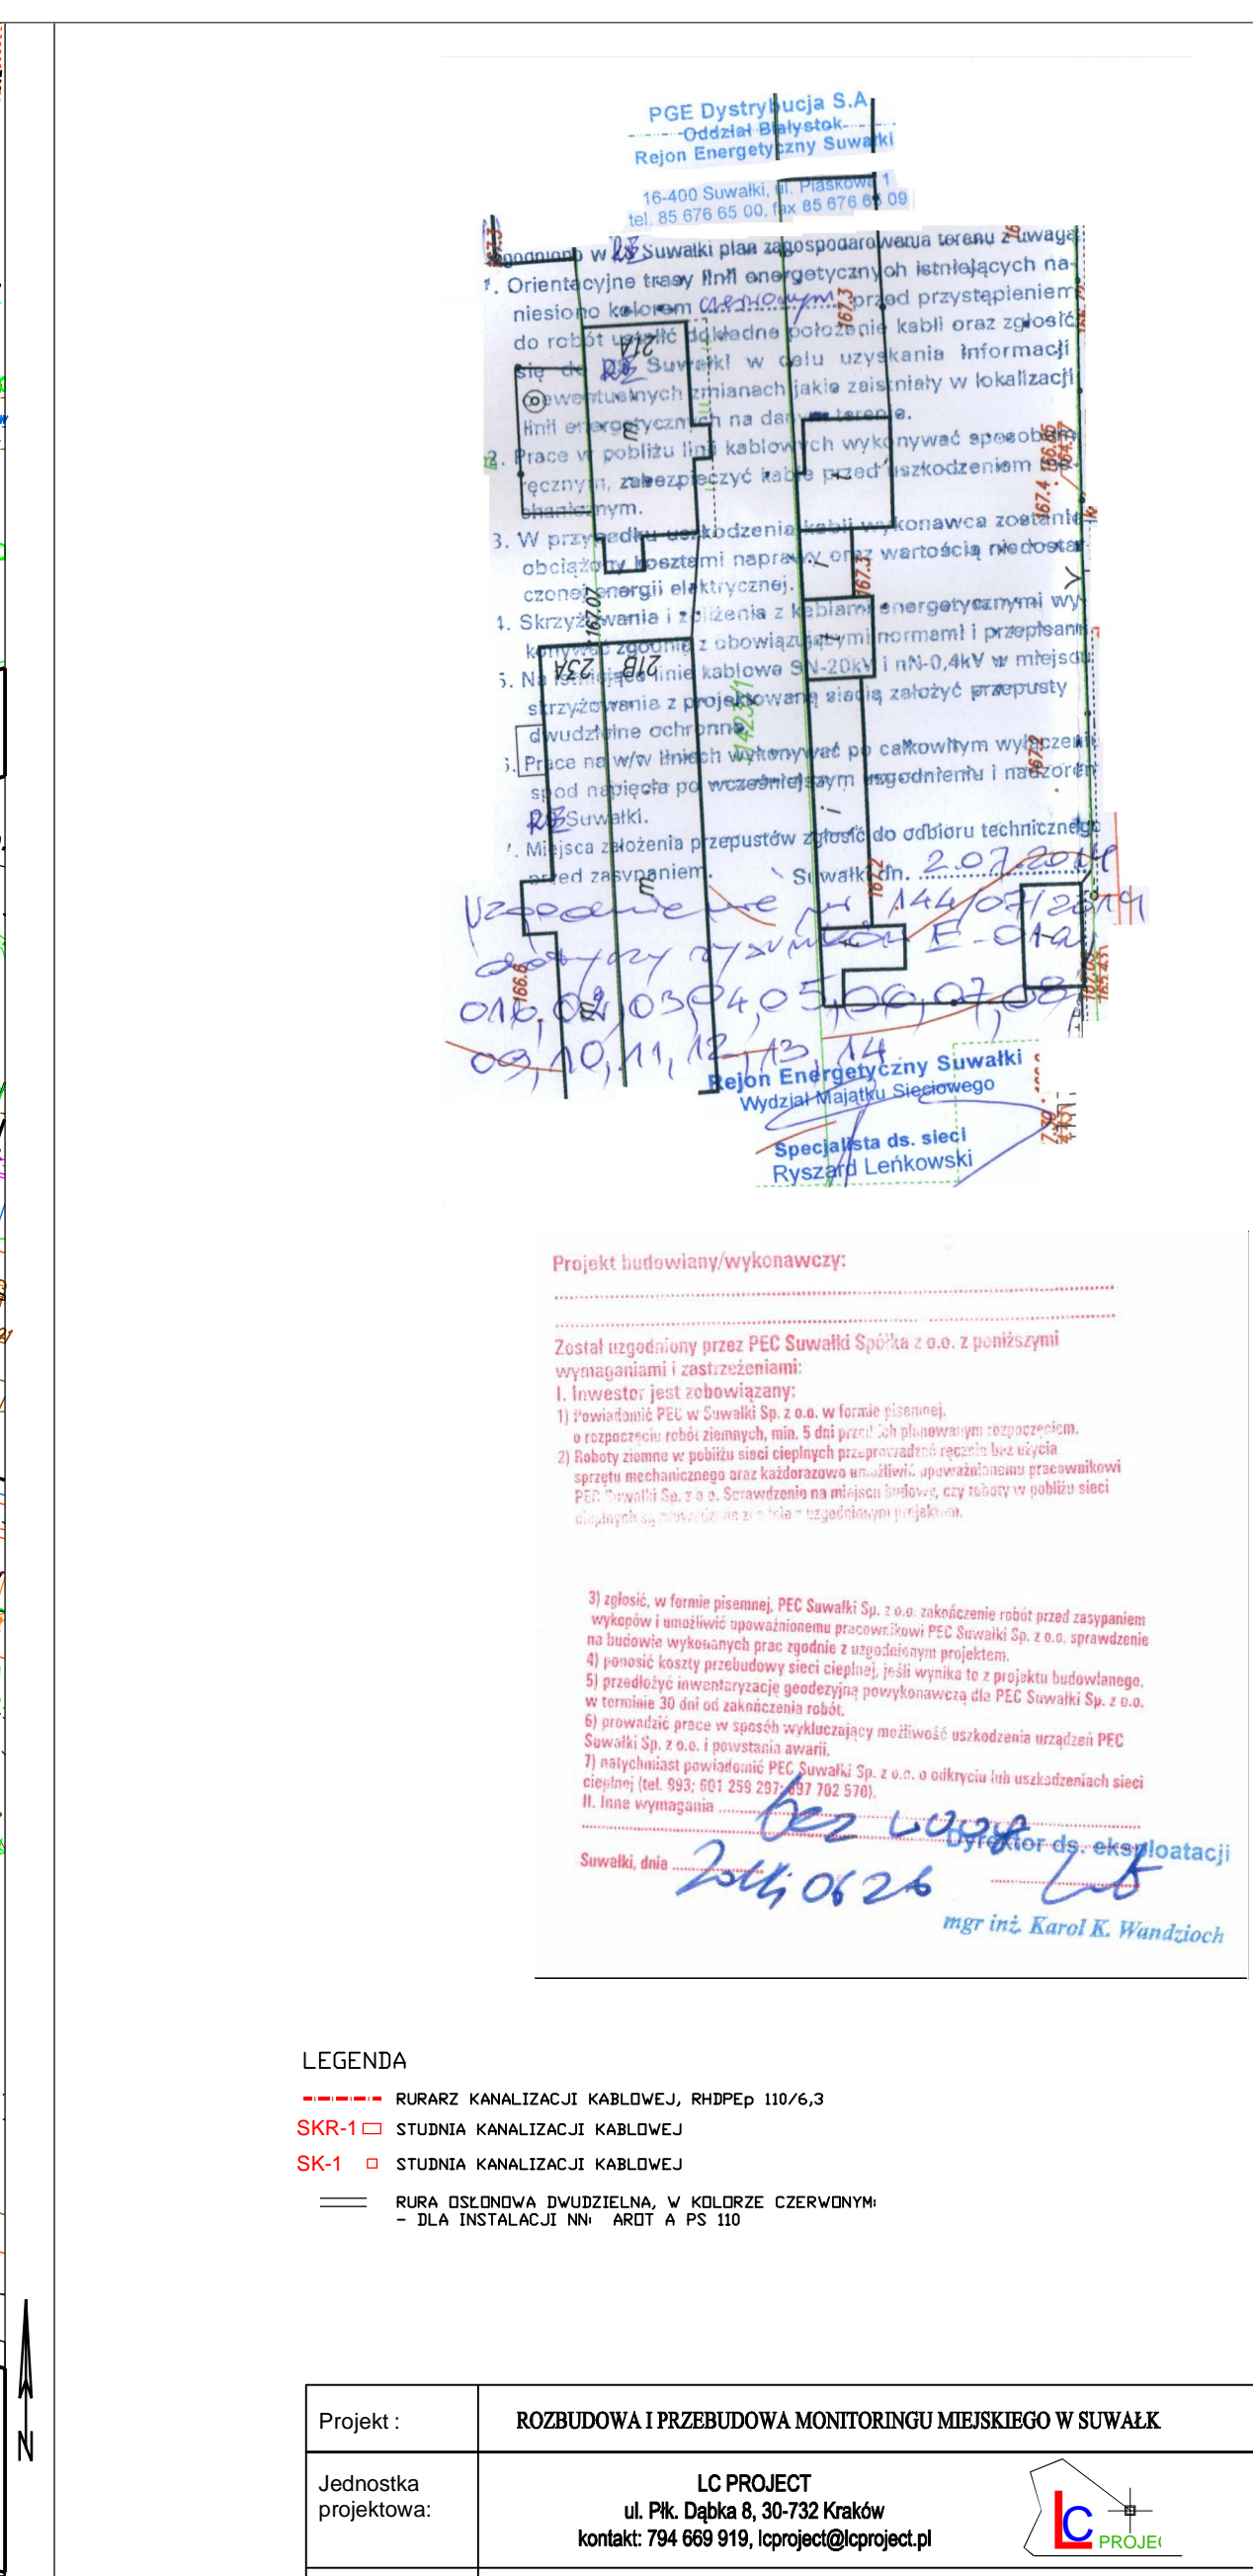 PGE Dystrybucja S.A.
Oddział Białystok
Rejon Energetyczny Suwałki
16-400 Suwałki, ul. Piaskowa 1
tel. 85 676 65 00, fax 85 676 65 09
w RE Suwałki plan zagospodarowania terenu z uwagą
1. Orientacyjne trasy linii energetycznych istniejących na-
niesiono kolorem czerwonym, przed przystąpieniem
do robót ustalić dokładne położenie kabli oraz zgłosić
się do RE Suwałki w celu uzyskania informacji
o ewentualnych zmianach jakie zaistniały w lokalizacji
linii energetycznych na danym terenie.
2. Prace w pobliżu linii kablowych wykonywać sposobem
ręcznym, zabezpieczyć kable przed uszkodzeniem
chanicznym.
3. W przypadku uszkodzenia kabli wykonawca zostanie
obciążony kosztami naprawy oraz wartością niedostar
czonej energii elektrycznej.
4. Skrzyżowania i zbliżenia z kablami energetycznymi wy
konywać zgodnie z obowiązującymi normami i przepisami
5. Na istniejące linie kablowe SN-20kV i nN-0,4kV w miejscu
skrzyżowania z projektowaną siecią założyć przepusty
dwudzielne ochronne.
6. Prace na w/w liniach wykonywać po całkowitym wyłączeniu
spod napięcia po wcześniejszym uzgodnieniu i nadzorem
RE Suwałki.
7. Miejsca założenia przepustów zgłosić do odbioru technicznego
przed zasypaniem. Suwałki dn. 2.07.2014
Uzgodnienie nr 144/07/2014
dotyczy rysunków E-01a,
01b, 02, 03, 04, 05, 06, 07, 08
09, 10, 11, 12, 13, 14
Rejon Energetyczny Suwałki
Wydział Majątku Sieciowego
Specjalista ds. sieci
Ryszard Leńkowski
167.3
21A
167.3
m
167.4
166.85
167.3
167.07
23A
21B
11423/1
167.2
167.2
m
166.6
m
Projekt budowlany/wykonawczy:
Został uzgodniony przez PEC Suwałki Spółka z o.o. z poniższymi
wymaganiami i zastrzeżeniami:
I. Inwestor jest zobowiązany:
1) Powiadomić PEC w Suwałki Sp. z o.o. w formie pisemnej,
o rozpoczęciu robót ziemnych, min. 5 dni przed ich planowanym rozpoczęciem.
2) Roboty ziemne w pobliżu sieci cieplnych przeprowadzać ręcznie bez użycia
sprzętu mechanicznego oraz każdorazowo umożliwić upoważnionemu pracownikowi
PEC Suwałki Sp. z o.o. Sprawdzenie na miejscu budowy, czy roboty w pobliżu sieci
cieplnych są prowadzone zgodnie z uzgodnionym projektem.
3) zgłosić, w formie pisemnej, PEC Suwałki Sp. z o.o. zakończenie robót przed zasypaniem
wykopów i umożliwić upoważnionemu pracownikowi PEC Suwałki Sp. z o.o. sprawdzenie
na budowie wykonanych prac zgodnie z uzgodnionym projektem.
4) ponosić koszty przebudowy sieci cieplnej, jeśli wynika to z projektu budowlanego.
5) przedłożyć inwentaryzację geodezyjną powykonawczą dla PEC Suwałki Sp. z o.o.
w terminie 30 dni od zakończenia robót.
6) prowadzić prace w sposób wykluczający możliwość uszkodzenia urządzeń PEC
Suwałki Sp. z o.o. i powstania awarii.
7) natychmiast powiadomić PEC Suwałki Sp. z o.o. o odkryciu lub uszkodzeniach sieci
cieplnej (tel. 993; 601 259 297; 697 702 570).
II. Inne wymagania bez uwag
Dyrektor ds. eksploatacji
Suwałki, dnia 2014 06 26
mgr inż. Karol K. Wandzioch
LEGENDA
RURARZ KANALIZACJI KABLOWEJ, RHDPEp 110/6,3
SKR-1 STUDNIA KANALIZACJI KABLOWEJ
SK-1 STUDNIA KANALIZACJI KABLOWEJ
RURA OSŁONOWA DWUDZIELNA, W KOLORZE CZERWONYM:
- DLA INSTALACJI NN: AROT A PS 110
N
Projekt : ROZBUDOWA I PRZEBUDOWA MONITORINGU MIEJSKIEGO W SUWAŁK
Jednostka
projektowa:
LC PROJECT
ul. Płk. Dąbka 8, 30-732 Kraków
kontakt: 794 669 919, lcproject@lcproject.pl
LC PROJEC